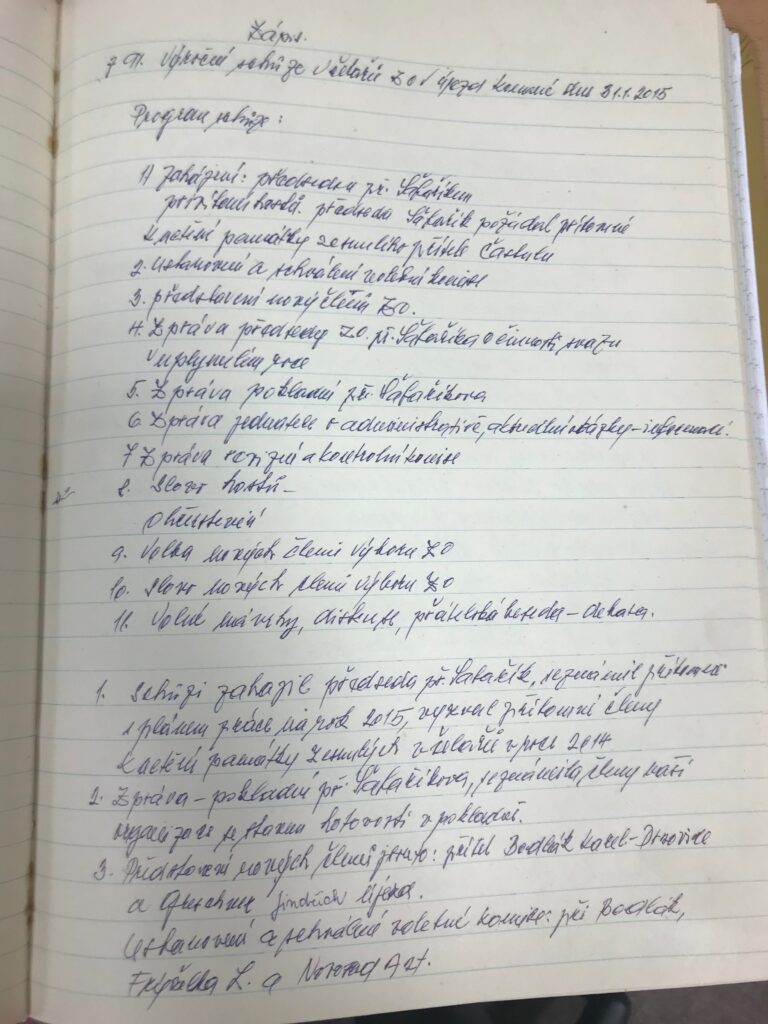 Zápis.
z 91. Výroční schůze Včelařů ZO Újezd konané dne 31.1.2015
Program schůze:
1) zahájení: předsedou př. Šafaříkem
přivítání hostů. předseda Šafařík požádal přítomné
k uctění památky zesnulého přítele
2. Ustanovení a schválení volební komise
3. představení nových členů ZO.
4. Zpráva předsedy ZO. př. Šafaříka o činnosti svazu
v uplynulém roce
5. Zpráva pokladní př. Šafaříkova
6. Zpráva jednatele o administrativě, aktuální otázky – informace.
7 Zpráva revizní a kontrolní komise
8. Slovo hostů –
Občerstvení
9. Volba nových členů výboru ZO
10. Slovo nových členů výboru ZO
11. Volné návrhy, diskuse, přátelská beseda – debata.
1. Schůzi zahájil předseda př. Šafařík, seznámil přítomné
s plánem práce na rok 2015, vyzval přítomné členy
k uctění památky zesnulých včelařů v roce 2014
2. Zpráva – pokladní př. Šafaříkova, seznámila členy naší
organizace se stavem hotovosti v pokladně.
3. Představení nových členů přítel Bodlák Karel –
a Jindřich Újezd.
Ustanovení a schválení volební komise: př. Bodlák,
L. a Ant.